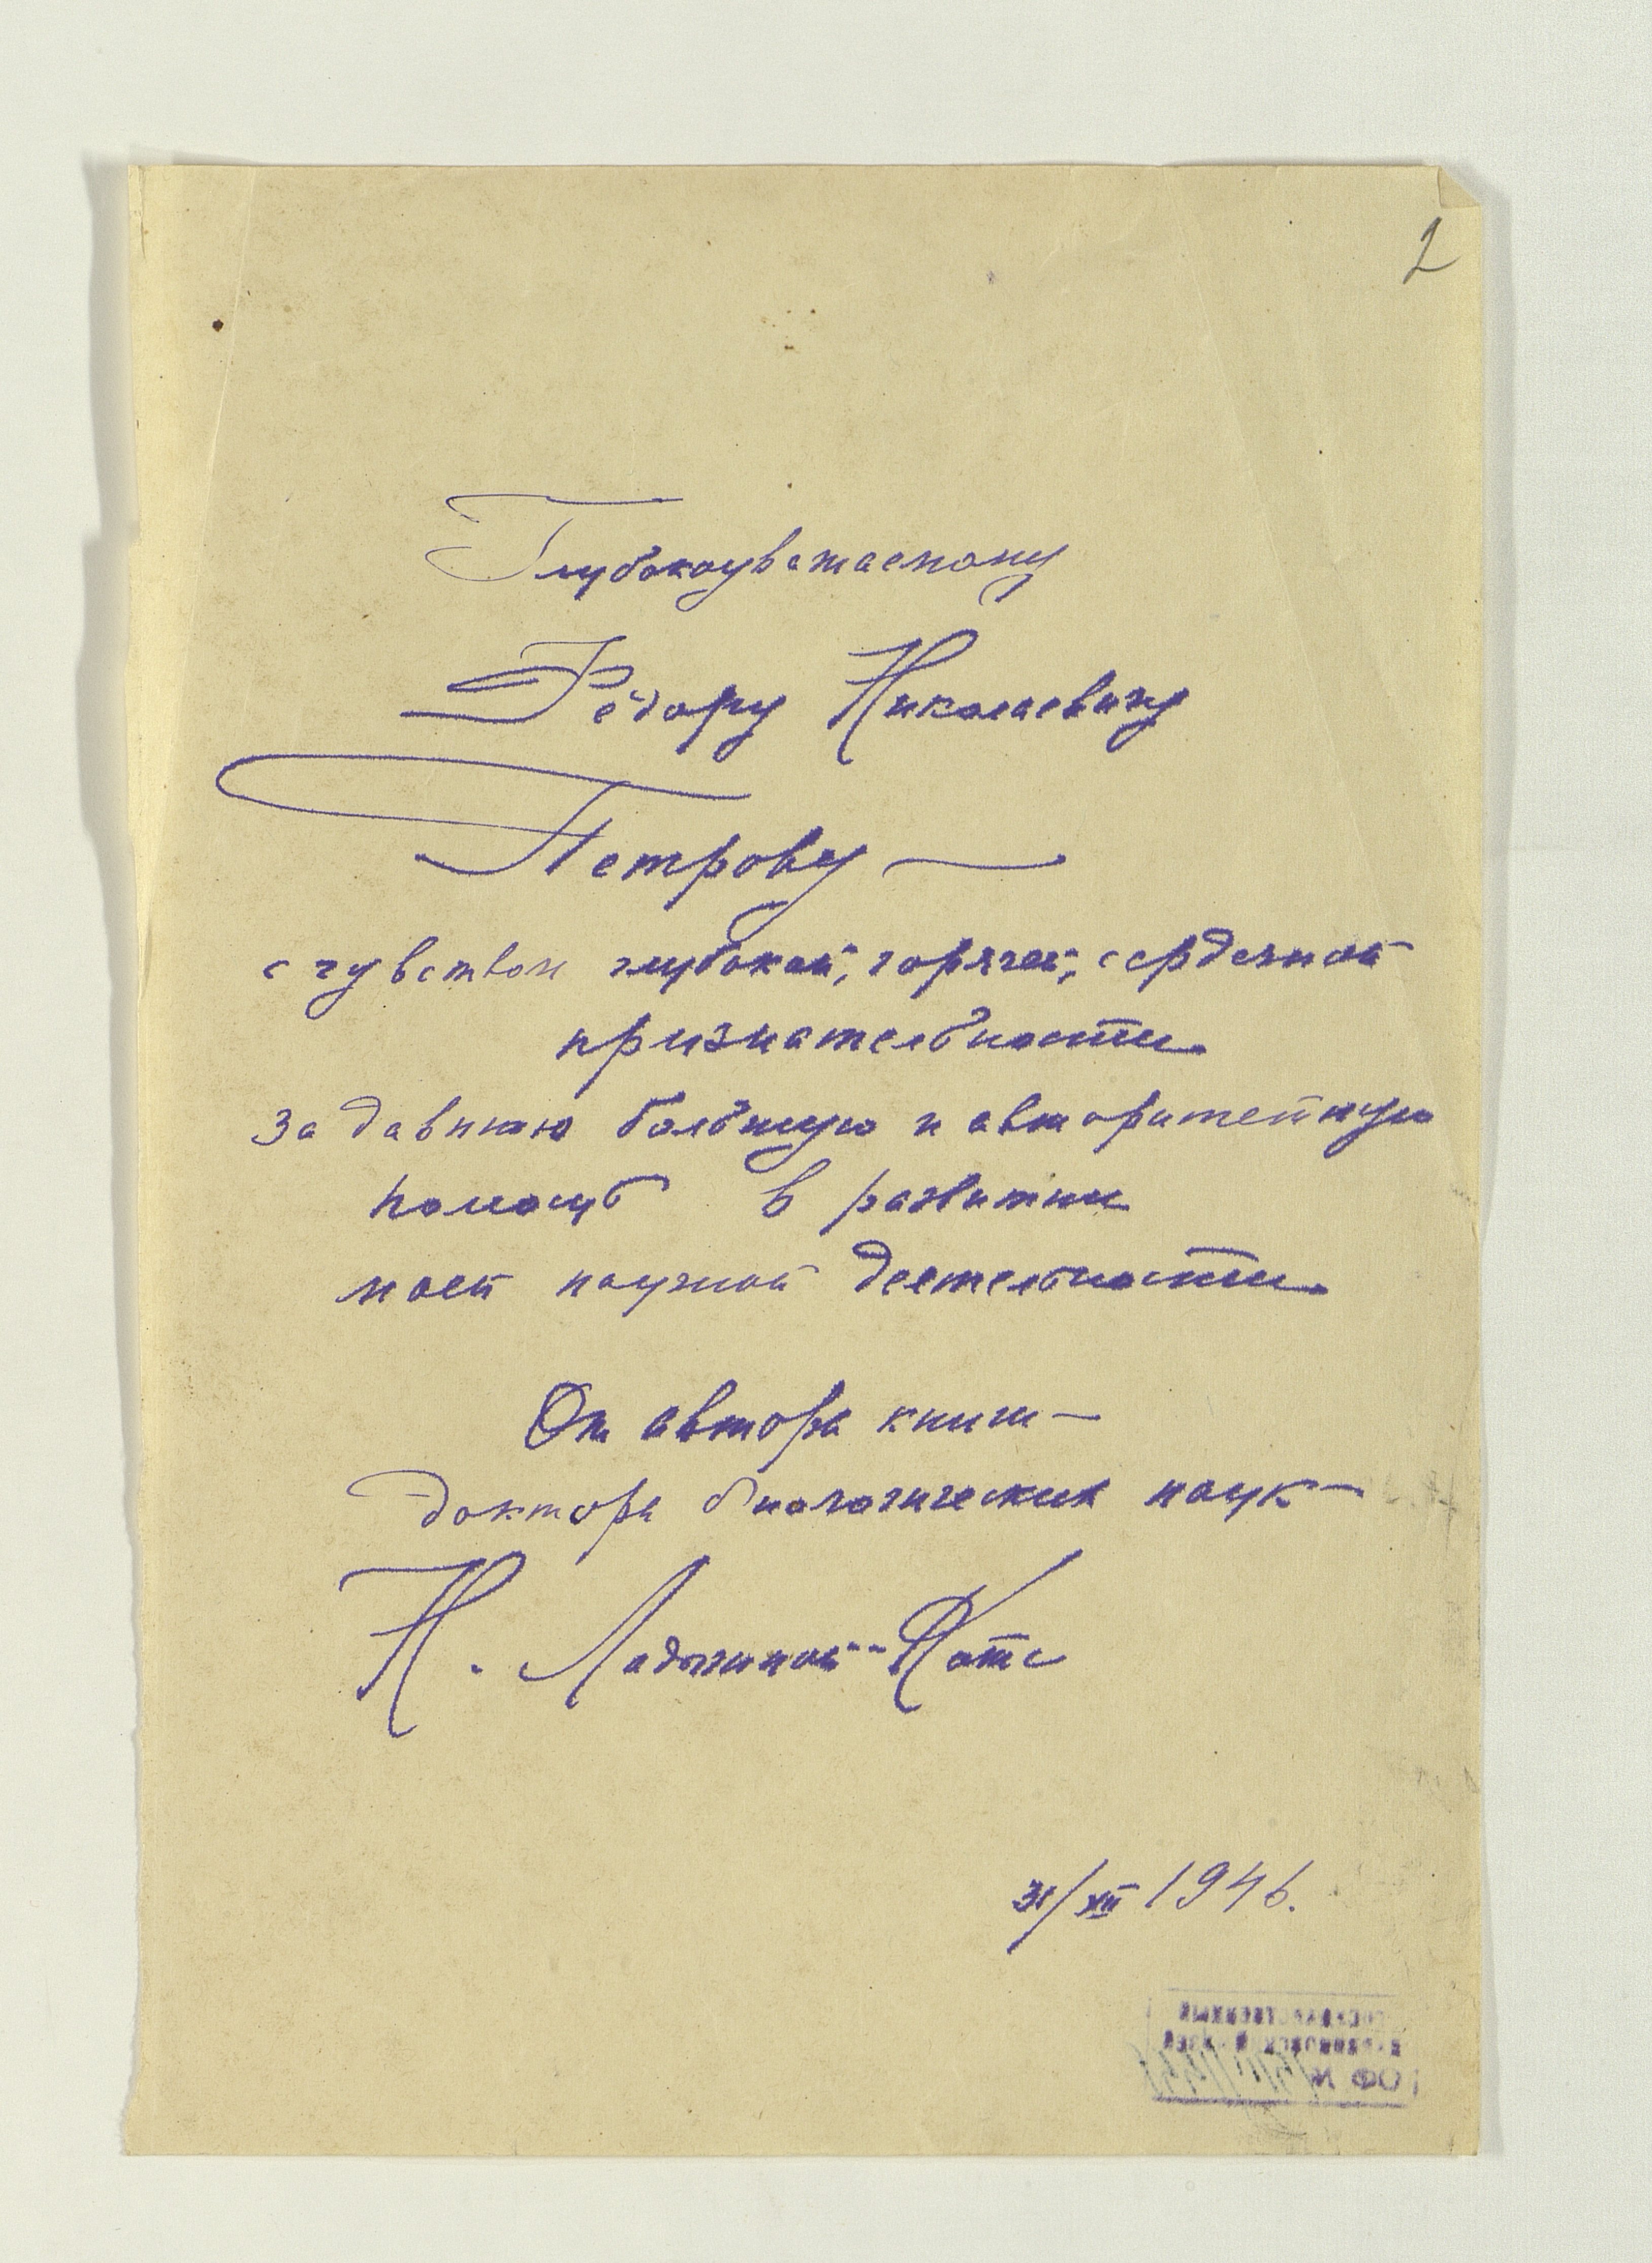 2
Глубокоуважаемому
Фёдору Николаевичу
Петрову —
с чувством глубокой, горячей, сердечной
признательности
за давнюю большую и авторитетную
помощь в развитии
моей научной деятельности
От автора книги —
доктора биологических наук —
Н. Ладыгиной-Котс
31/XII 1946.
ОФ №